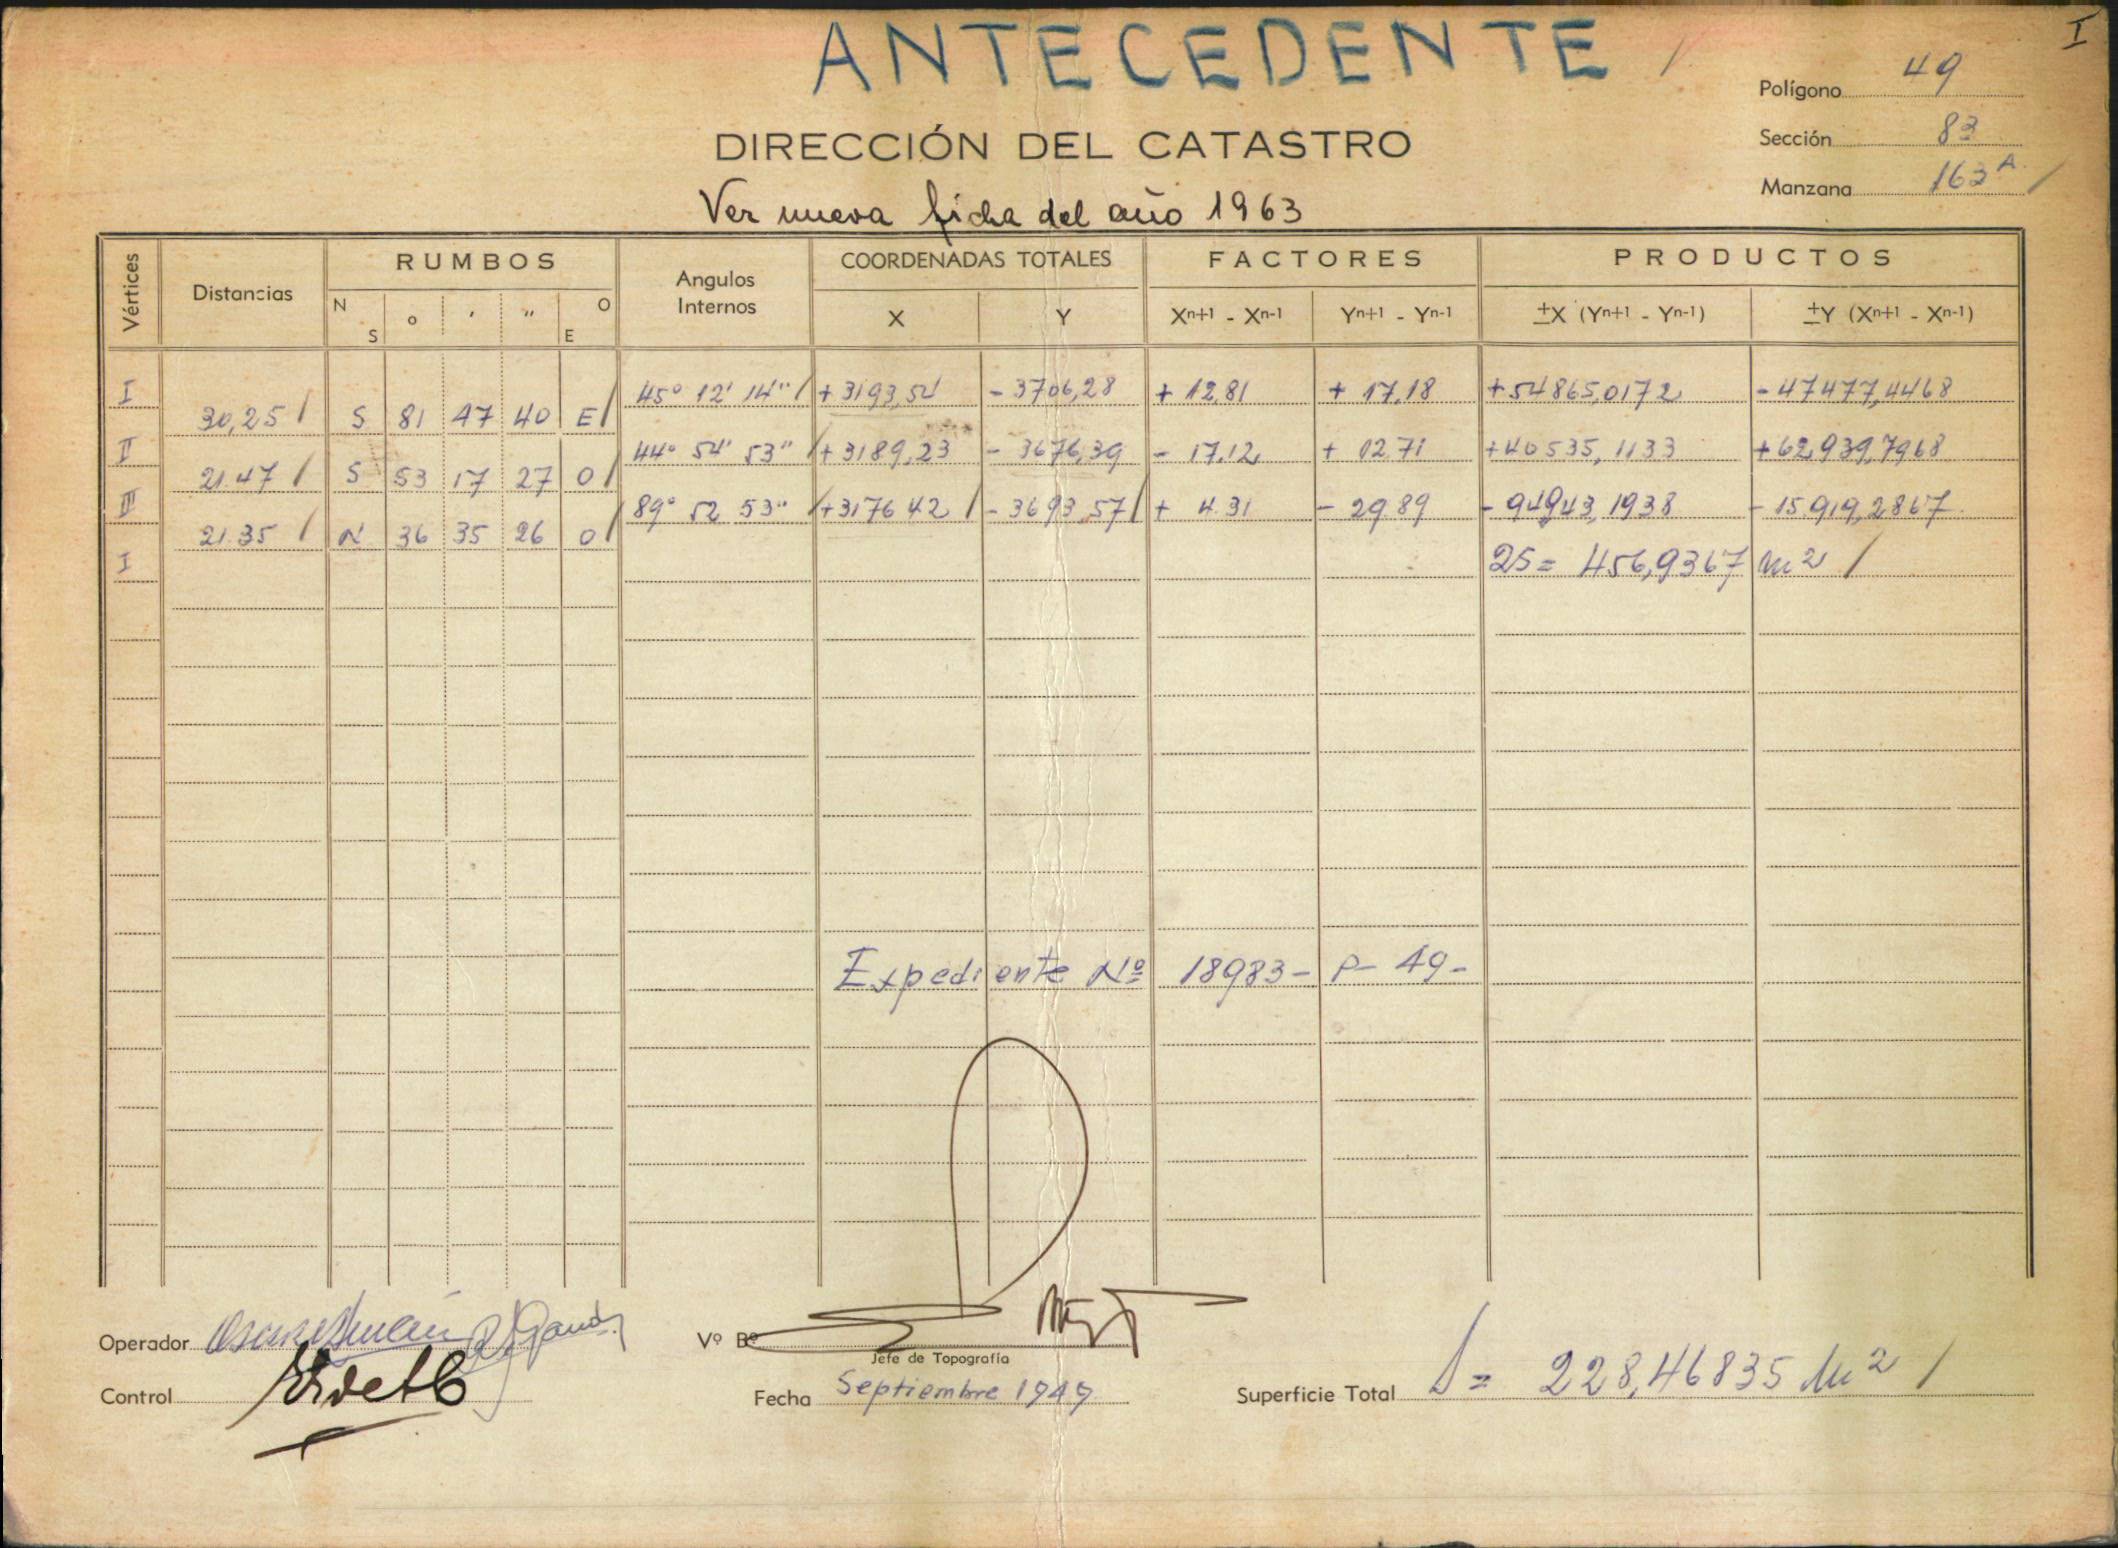 I
ANTECEDENTE /
Polígono 49
DIRECCIÓN DEL CATASTRO
Sección 83
Manzana 163 A. /
Ver nueva ficha del año 1963
Vértices Distancias RUMBOS Angulos Internos COORDENADAS TOTALES FACTORES PRODUCTOS
N S o ' " O E X Y Xn+1 - Xn-1 Yn+1 - Yn-1 ±X (Yn+1 - Yn-1) ±Y (Xn+1 - Xn-1)
I 45° 12' 14" / +3193,54 - 3706,28 + 12,81 + 17,18 +54865,0172 -47477,4468
30,25 / S 81 47 40 E /
II 44° 54' 53" / +3189,23 - 3676,39 - 17,12 + 12,71 +40535,1133 +62,939,7968
21.47 / S 53 17 27 O /
III 89° 52 53" / +3176 42 / -3693,57 / + 4.31 - 29 89 - 94943,1938 - 15.919,2867
21.35 / N 36 35 26 O /
I 2S = 456,9367 m2 /
Expediente Nº 18983 - P - 49 -
Operador
Vº Bº
Jefe de Topografía
Control
Fecha Septiembre 1949
Superficie Total S = 228,46835 m2 /